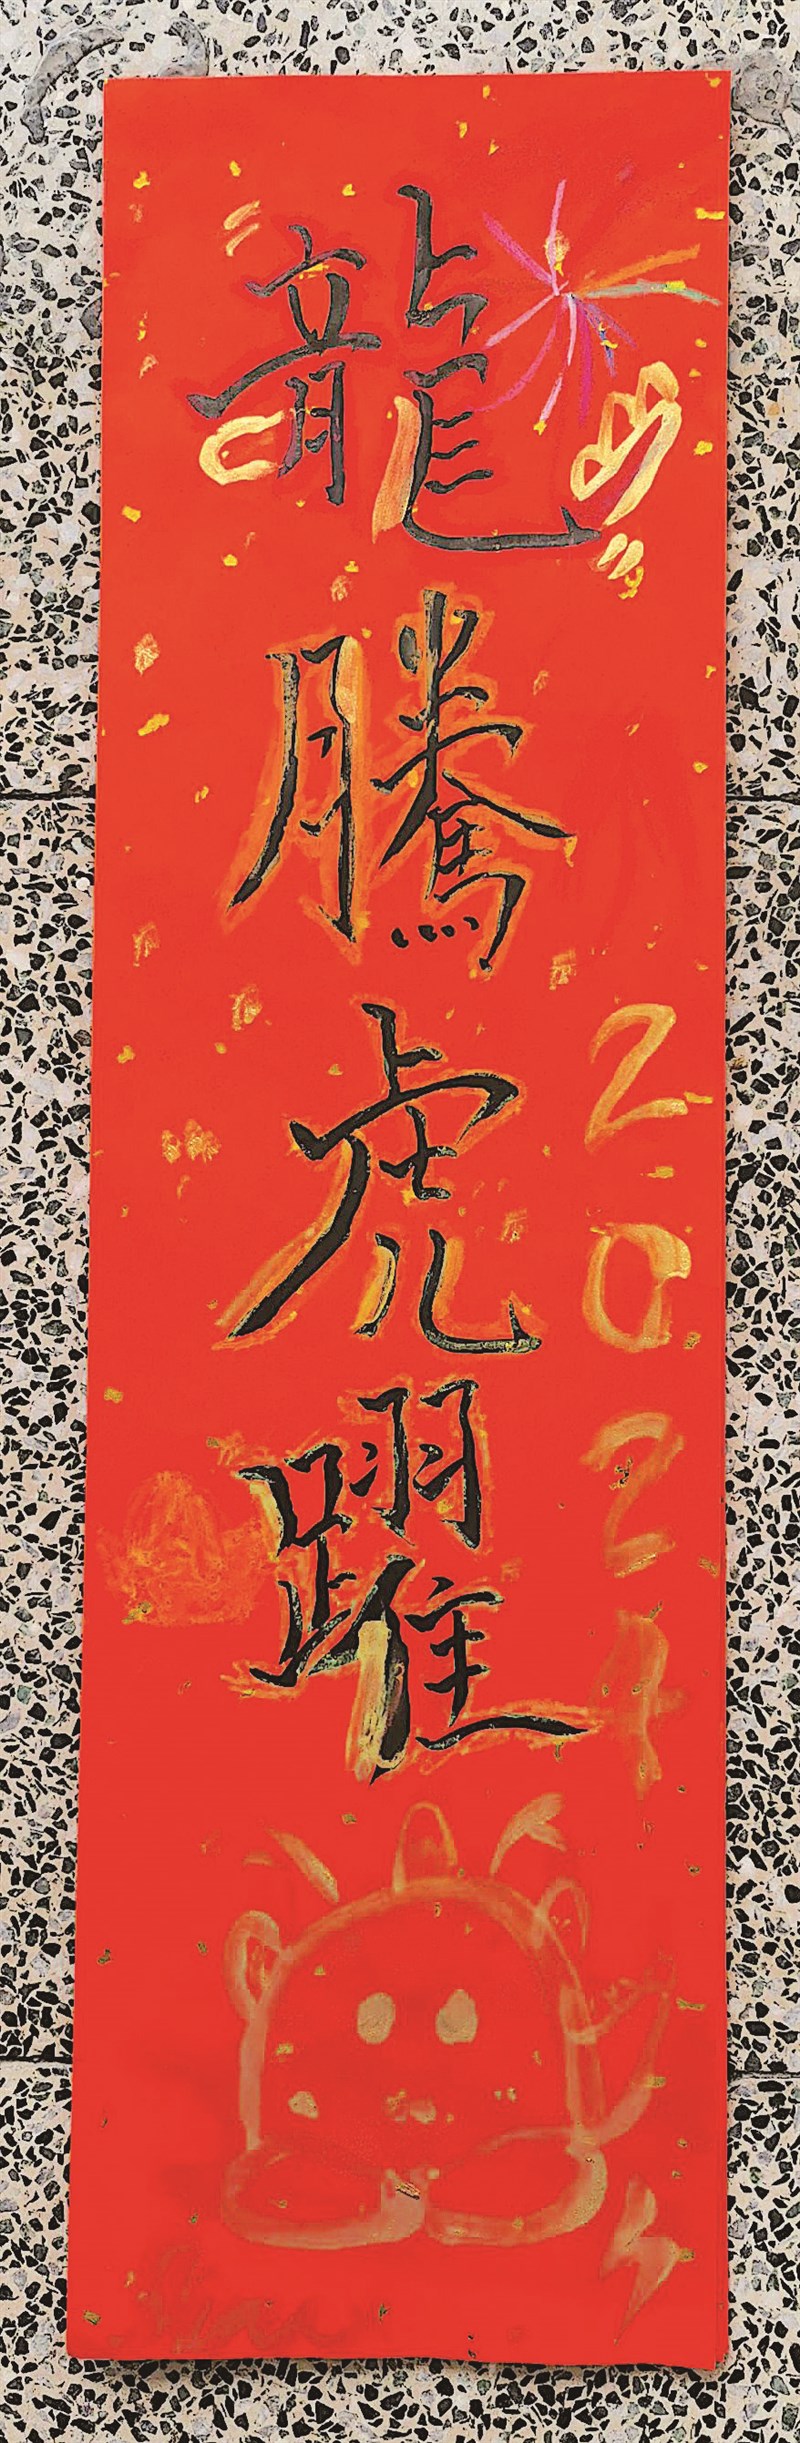 龍騰虎躍
2024